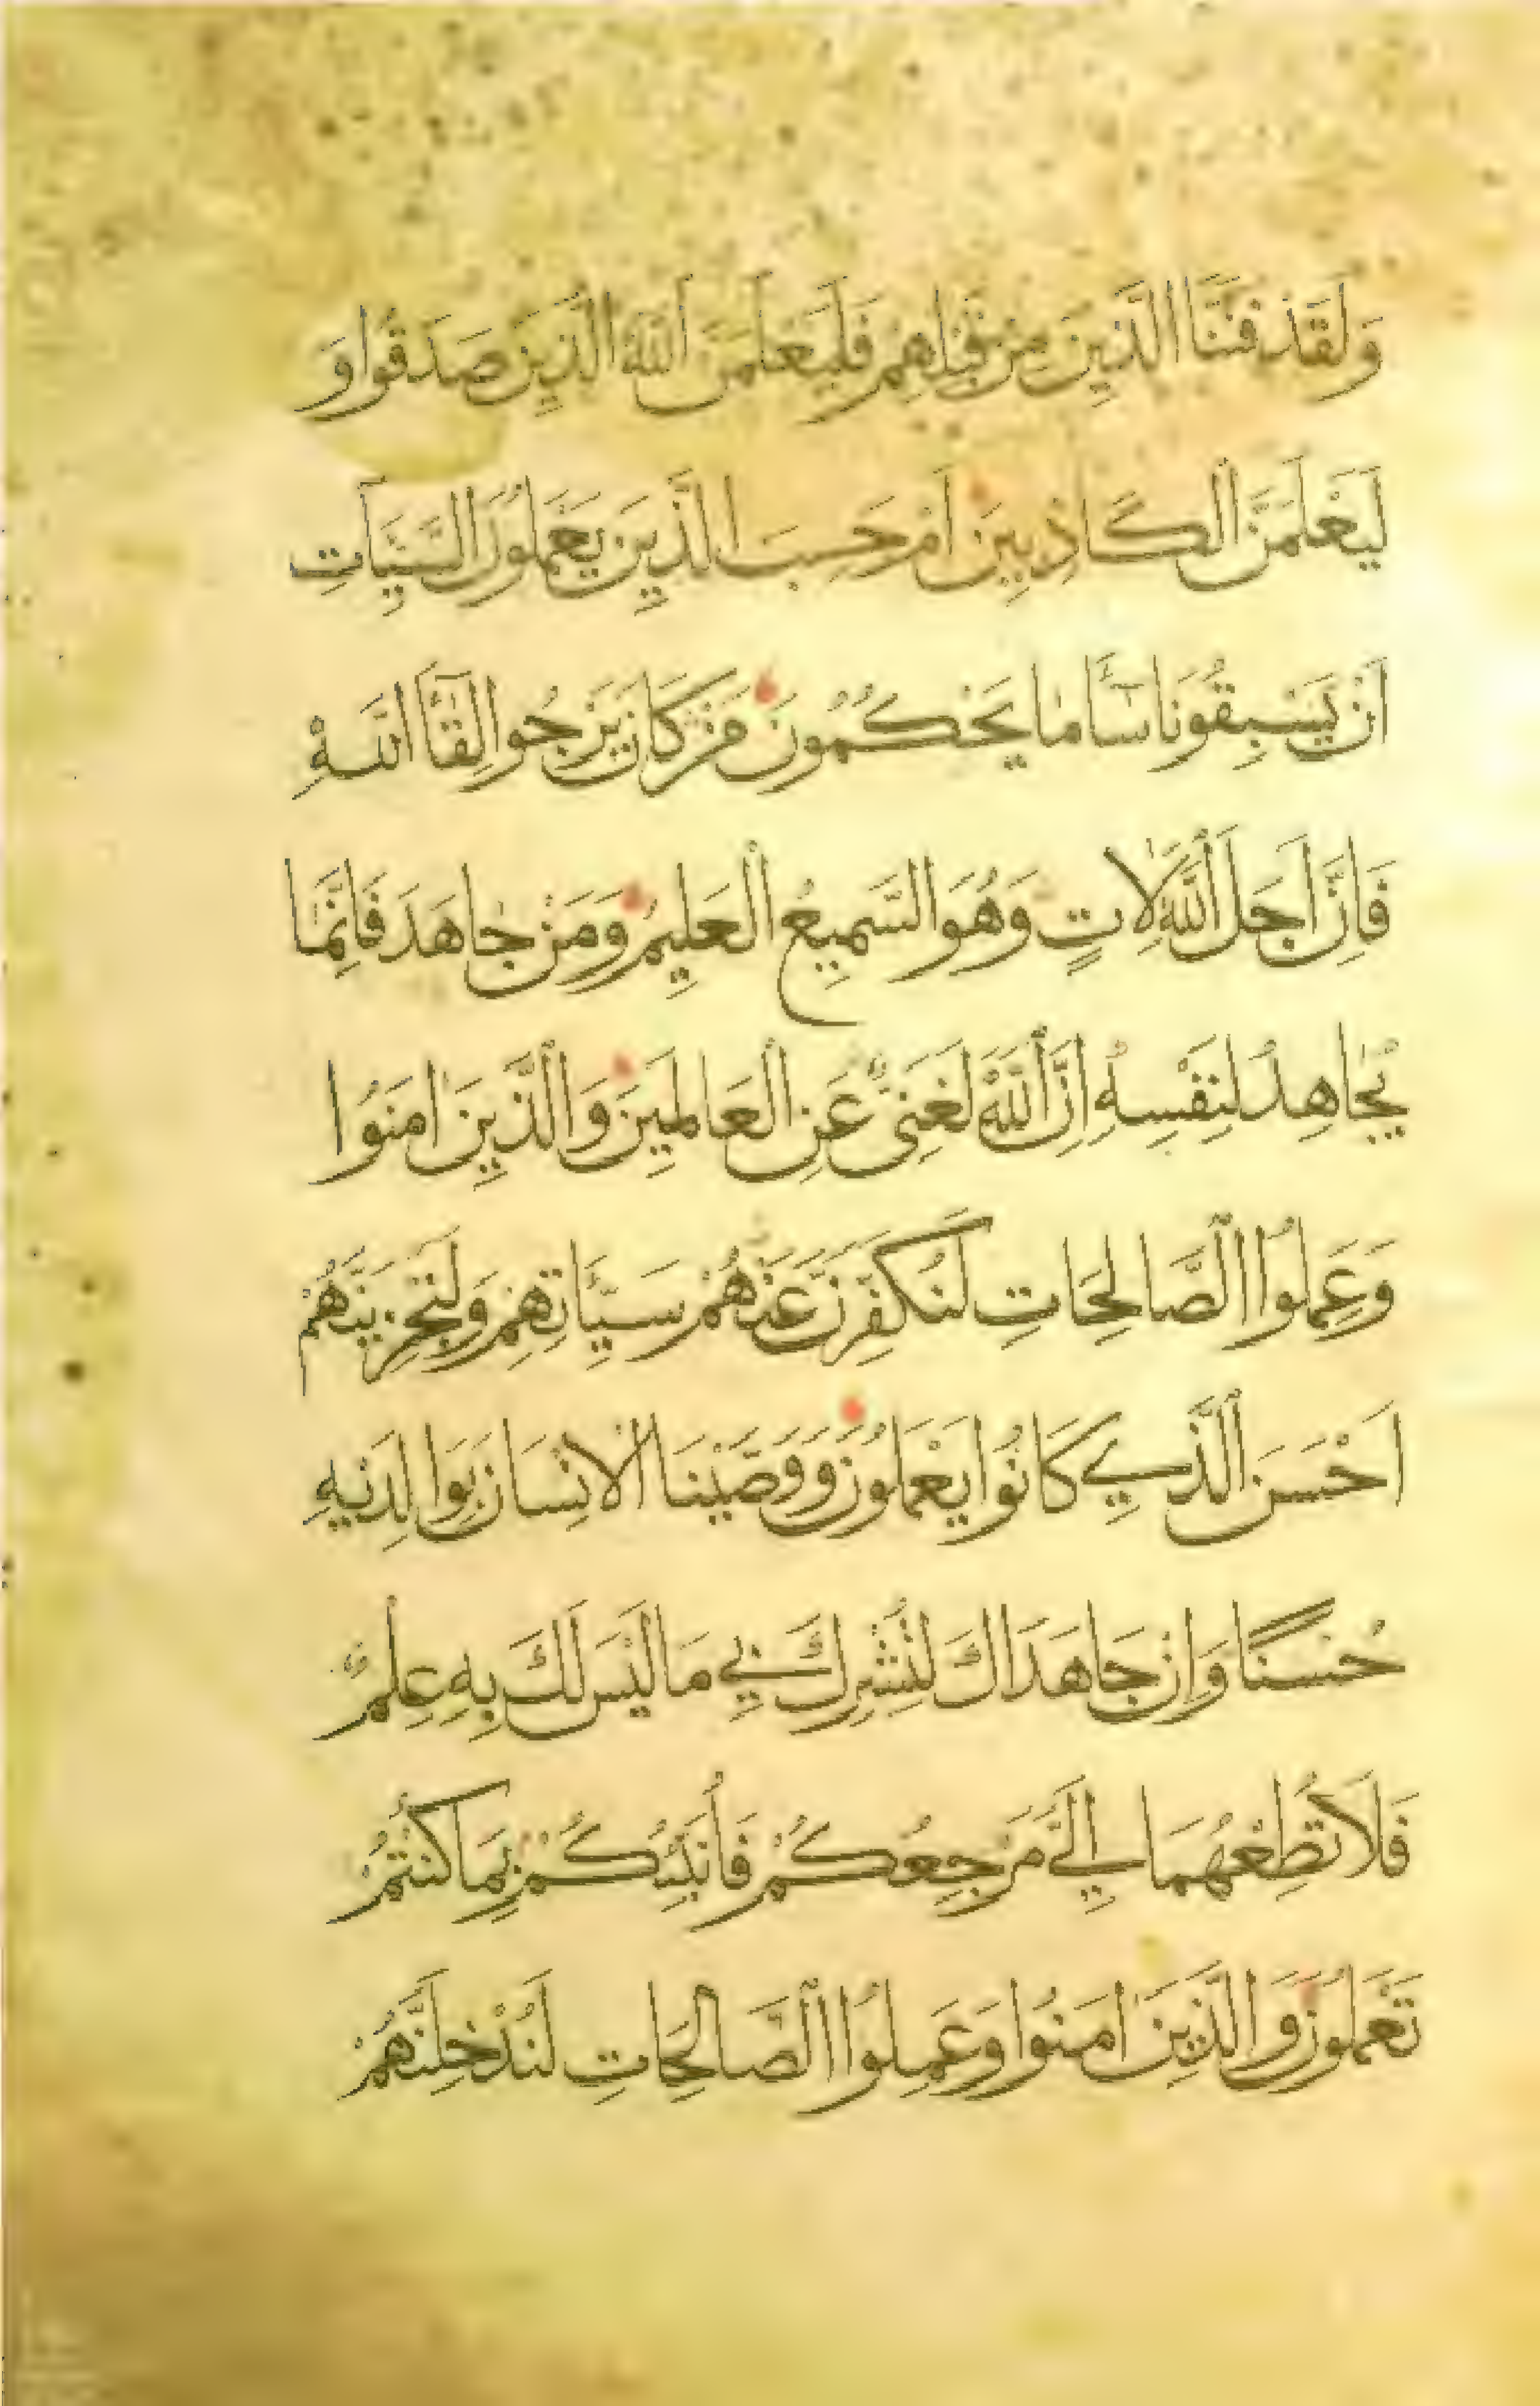 وَلَقَدْ فَتَنَّا الَّذِينَ مِنْ قَبْلِهِمْ فَلَيَعْلَمَنَّ اللَّهُ الَّذِينَ صَدَقُوا وَ
لَيَعْلَمَنَّ الْكَاذِبِينَ اَمْ حَسِبَ الَّذِينَ يَعْمَلُونَ السَّيِّئَاتِ
اَنْ يَسْبِقُونَا سَآءَ مَا يَحْكُمُونَ مَنْ كَانَ يَرْجُوا لِقَآءَ اللَّهِ
فَاِنَّ اَجَلَ اللَّهِ لَاٰتٍ وَهُوَ السَّمِيعُ الْعَلِيمُ وَمَنْ جَاهَدَ فَاِنَّمَا
يُجَاهِدُ لِنَفْسِهِ اِنَّ اللَّهَ لَغَنِيٌّ عَنِ الْعَالَمِينَ وَالَّذِينَ اٰمَنُوا
وَعَمِلُوا الصَّالِحَاتِ لَنُكَفِّرَنَّ عَنْهُمْ سَيِّئَاتِهِمْ وَلَنَجْزِيَنَّهُمْ
اَحْسَنَ الَّذِي كَانُوا يَعْمَلُونَ وَوَصَّيْنَا الْاِنْسَانَ بِوَالِدَيْهِ
حُسْنًا وَاِنْ جَاهَدَاكَ لِتُشْرِكَ بِي مَا لَيْسَ لَكَ بِهِ عِلْمٌ
فَلَا تُطِعْهُمَا اِلَيَّ مَرْجِعُكُمْ فَأُنَبِّئُكُمْ بِمَا كُنْتُمْ
تَعْمَلُونَ وَالَّذِينَ اٰمَنُوا وَعَمِلُوا الصَّالِحَاتِ لَنُدْخِلَنَّهُمْ